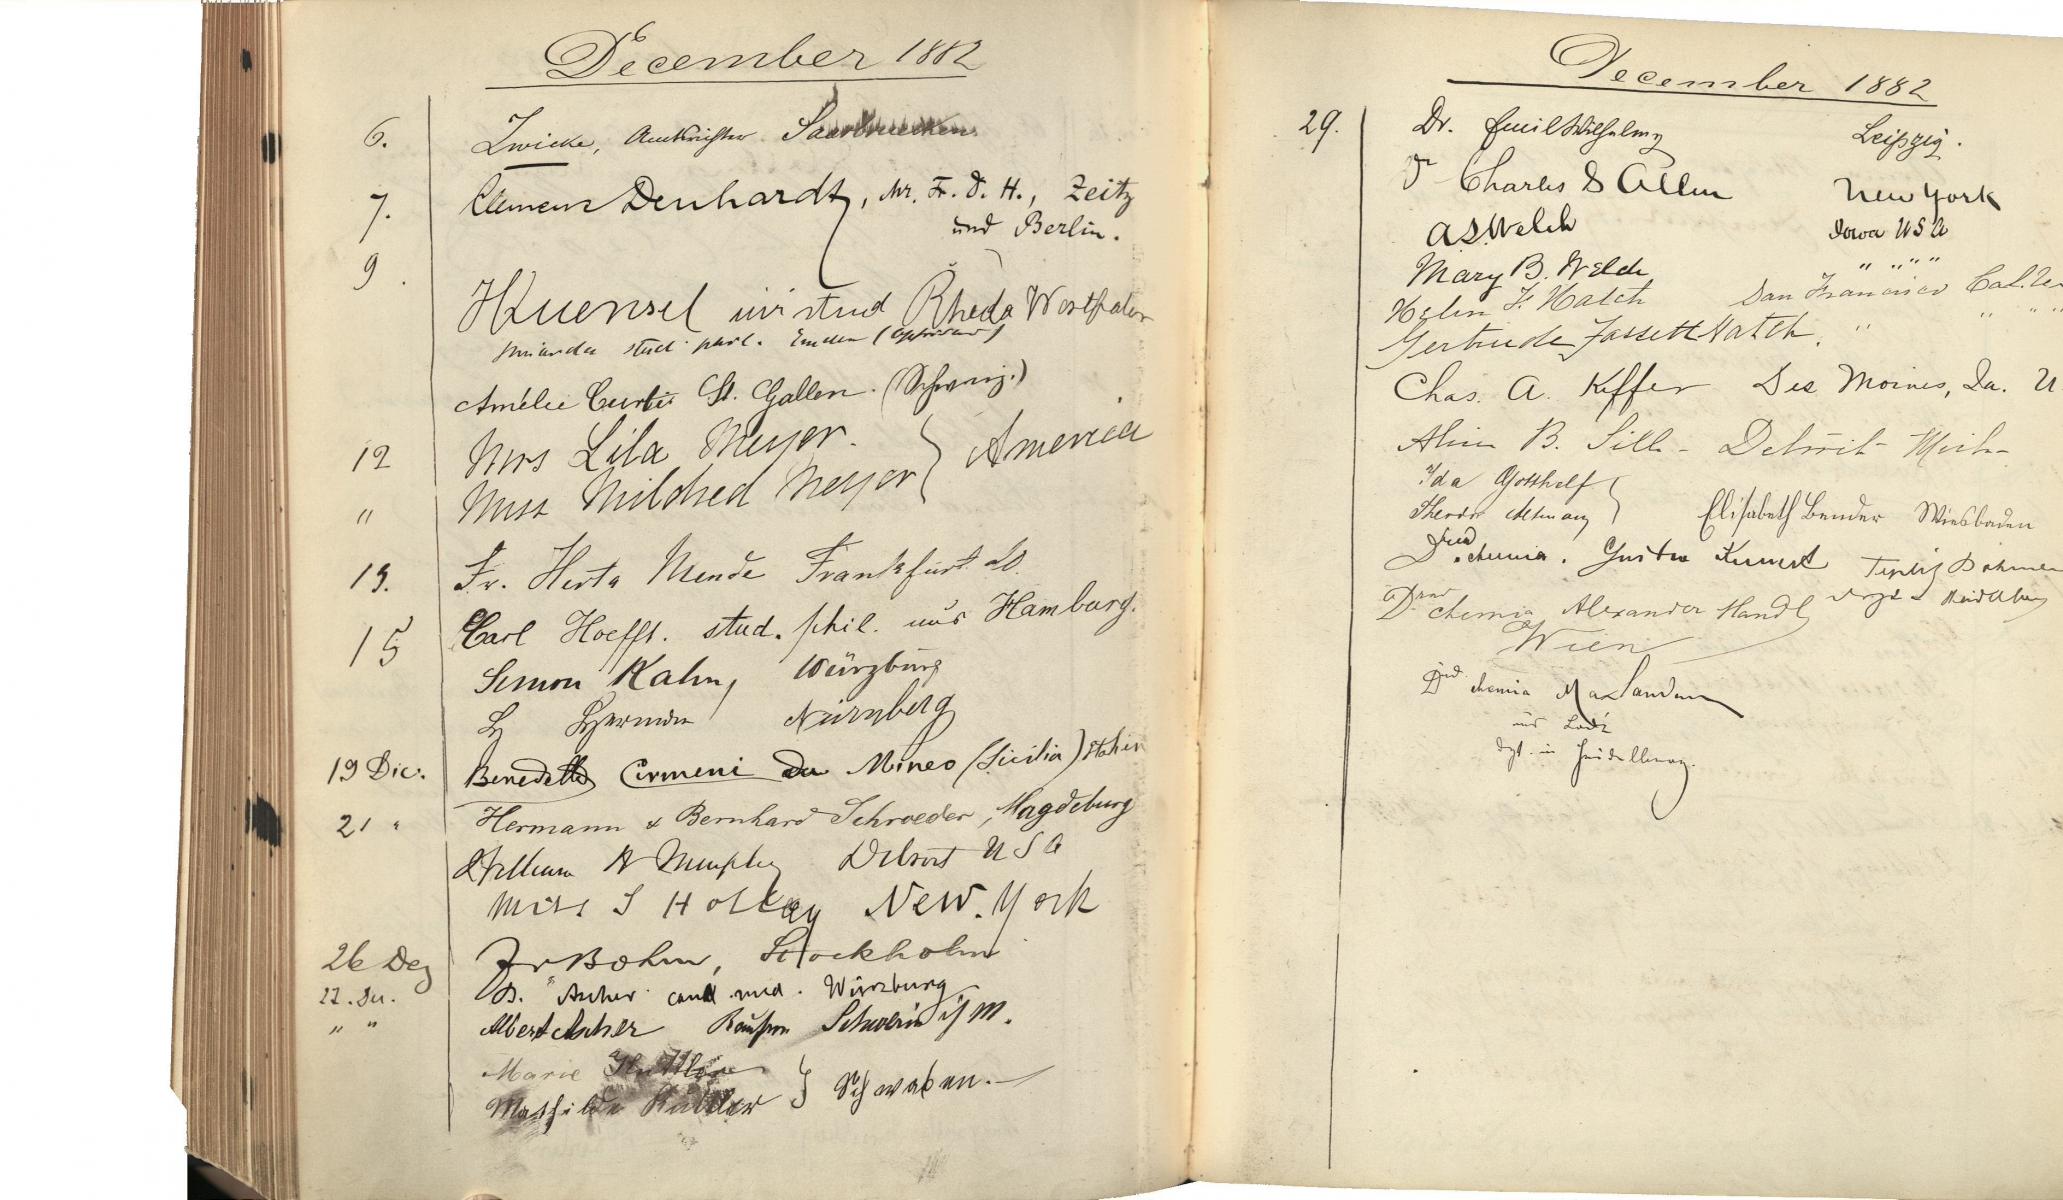 December 1882
6. Zwicke, Amtsrichter Saarbruecken
7. Clemens Denhardt, Mr. F. D. H., Zeitz
und Berlin.
9.
HKuensel stud Rheda Westfalen
stud. Emden
Amélie Curti St. Gallen. (Schweiz.)
12 Mrs Lila Meyer. } America
" Miss Mildred Meyer
13. Fr. Herta Mende Frankfurt
15 Carl Hoefft. stud. phil. aus Hamburg.
Simon Kahn, Würzburg
Nürnberg
19 Dic. Benedetto Cirmeni da Mineo (Sicilia) Italien
21 " Hermann & Bernhard Schroeder, Magdeburg
William H Murphy Detroit USA
Miss S Holley New-York
26 Dez Bohm, Stockholm
27. Dez. Ascher cand. med. Würzburg
" " Albert Ascher Schwerin i/M.
Marie
Mathilde } Schwaben.
December 1882
29. Dr. Emil Wilhelmy Leipzig.
Dr Charles S Allen New York
A S Welch Iowa USA
Mary B. Welch " " " "
Helen F. Hatch San Francisco Cal.
Gertrude Fassett Hatch. " " " "
Chas. A. Keffer Des Moines, Ia. U
B. Sill - Detroit - Mich-
Ida Gotthelf
Theodor } Elisabeth Bender Wiesbaden
chemia. Gustav Teplitz Böhmen
chemia Alexander Handl Heidelberg
Wien
chemia Max Landau
aus Lodz
dzt. in Heidelberg.